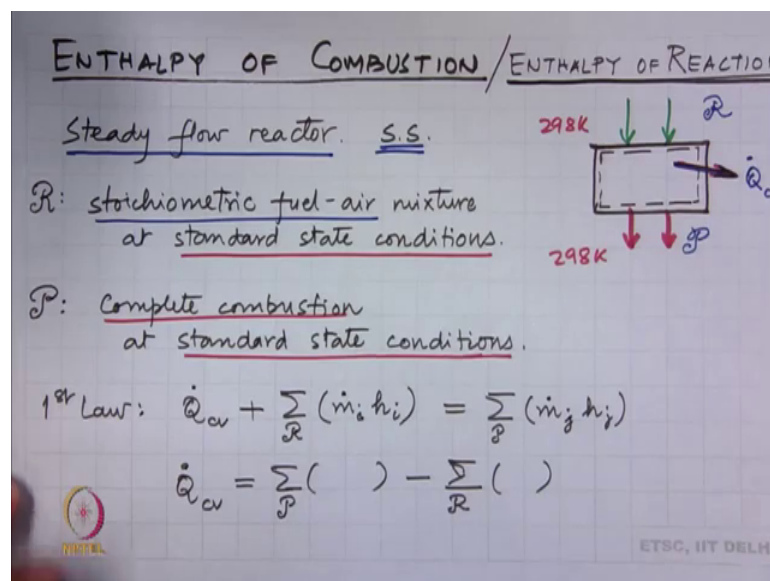 ENTHALPY OF COMBUSTION / ENTHALPY OF REACTIO
Steady flow reactor. S.S.
298K
R
Q̇c
R: stoichiometric fuel-air mixture
at standard state conditions.
298K
P
P: Complete combustion
at standard state conditions.
1st Law: Q̇cv + Σ_R (ṁi hi) = Σ_P (ṁj hj)
Q̇cv = Σ_P ( ) − Σ_R ( )
NPTEL
ETSC, IIT DELH